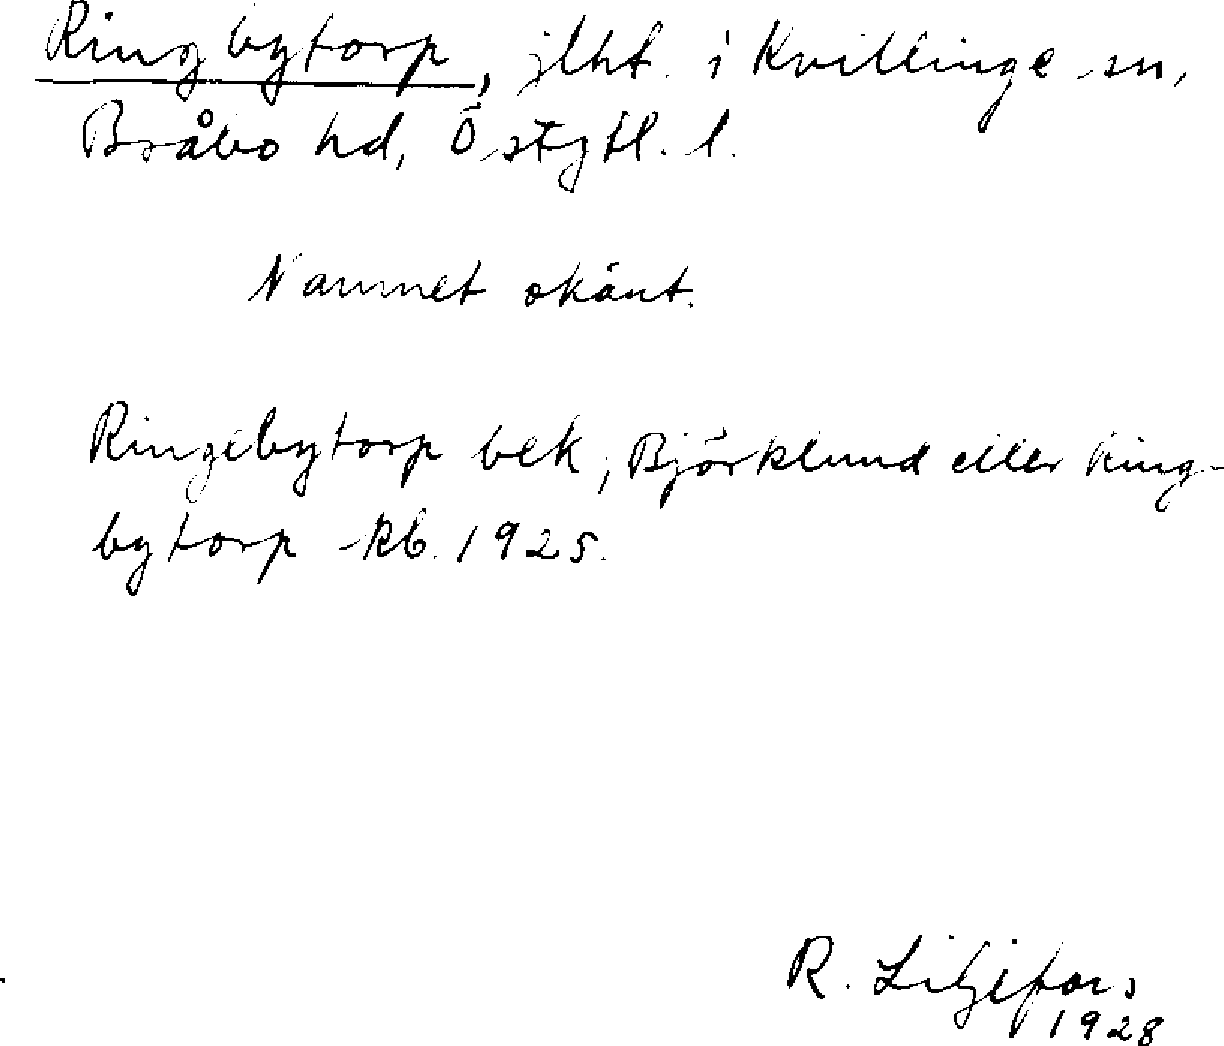 Ringbytorp, jlht. i Kvillinge sn,
Bråbo hd, Östgtl. l.
Namnet okänt.
Ringebytorp bek, Björklund eller Ring-
bytorp kb. 1925.
R. Liljefors
1928